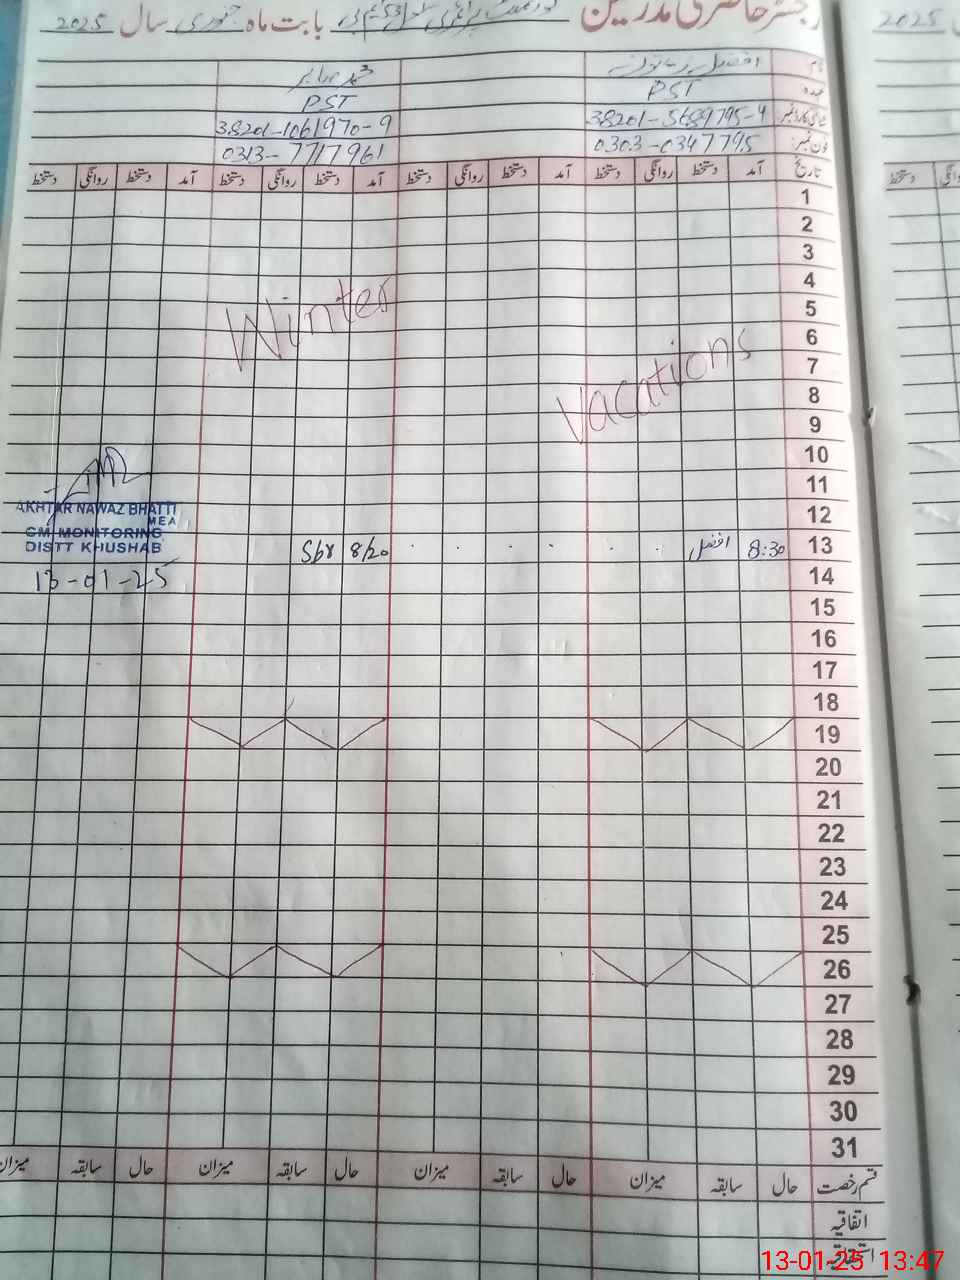 رجسٹر حاضری مدرسین گورنمنٹ پرائمری سکول بابت ماہ جنوری سال 2025
2025
نام افضل محمد صابر
عہدہ PST PST
شناختی کارڈ نمبر 38201-5689795-9 38201-1061970-9
فون نمبر: 0303-0347795 0313-7717961
تاریخ آمد دستخط روانگی دستخط آمد دستخط روانگی دستخط آمد دستخط روانگی دستخط آمد دستخط روانگی دستخط
دستخط
1
2
3
4
Winter
5
6
Vacations
7
8
9
10
11
12
AKHTAR NAWAZ BHATTI
MEA
CM MONITORING
DISTT KHUSHAB
13-01-25
13 8:30 افضل 8/20 Sbr
14
15
16
17
18
19
20
21
22
23
24
25
26
27
28
29
30
31
قسم رخصت حال سابقہ میزان حال سابقہ میزان حال سابقہ میزان حال سابقہ میزان
اتفاقیہ
استحقاقیہ
13-01-25 13:47